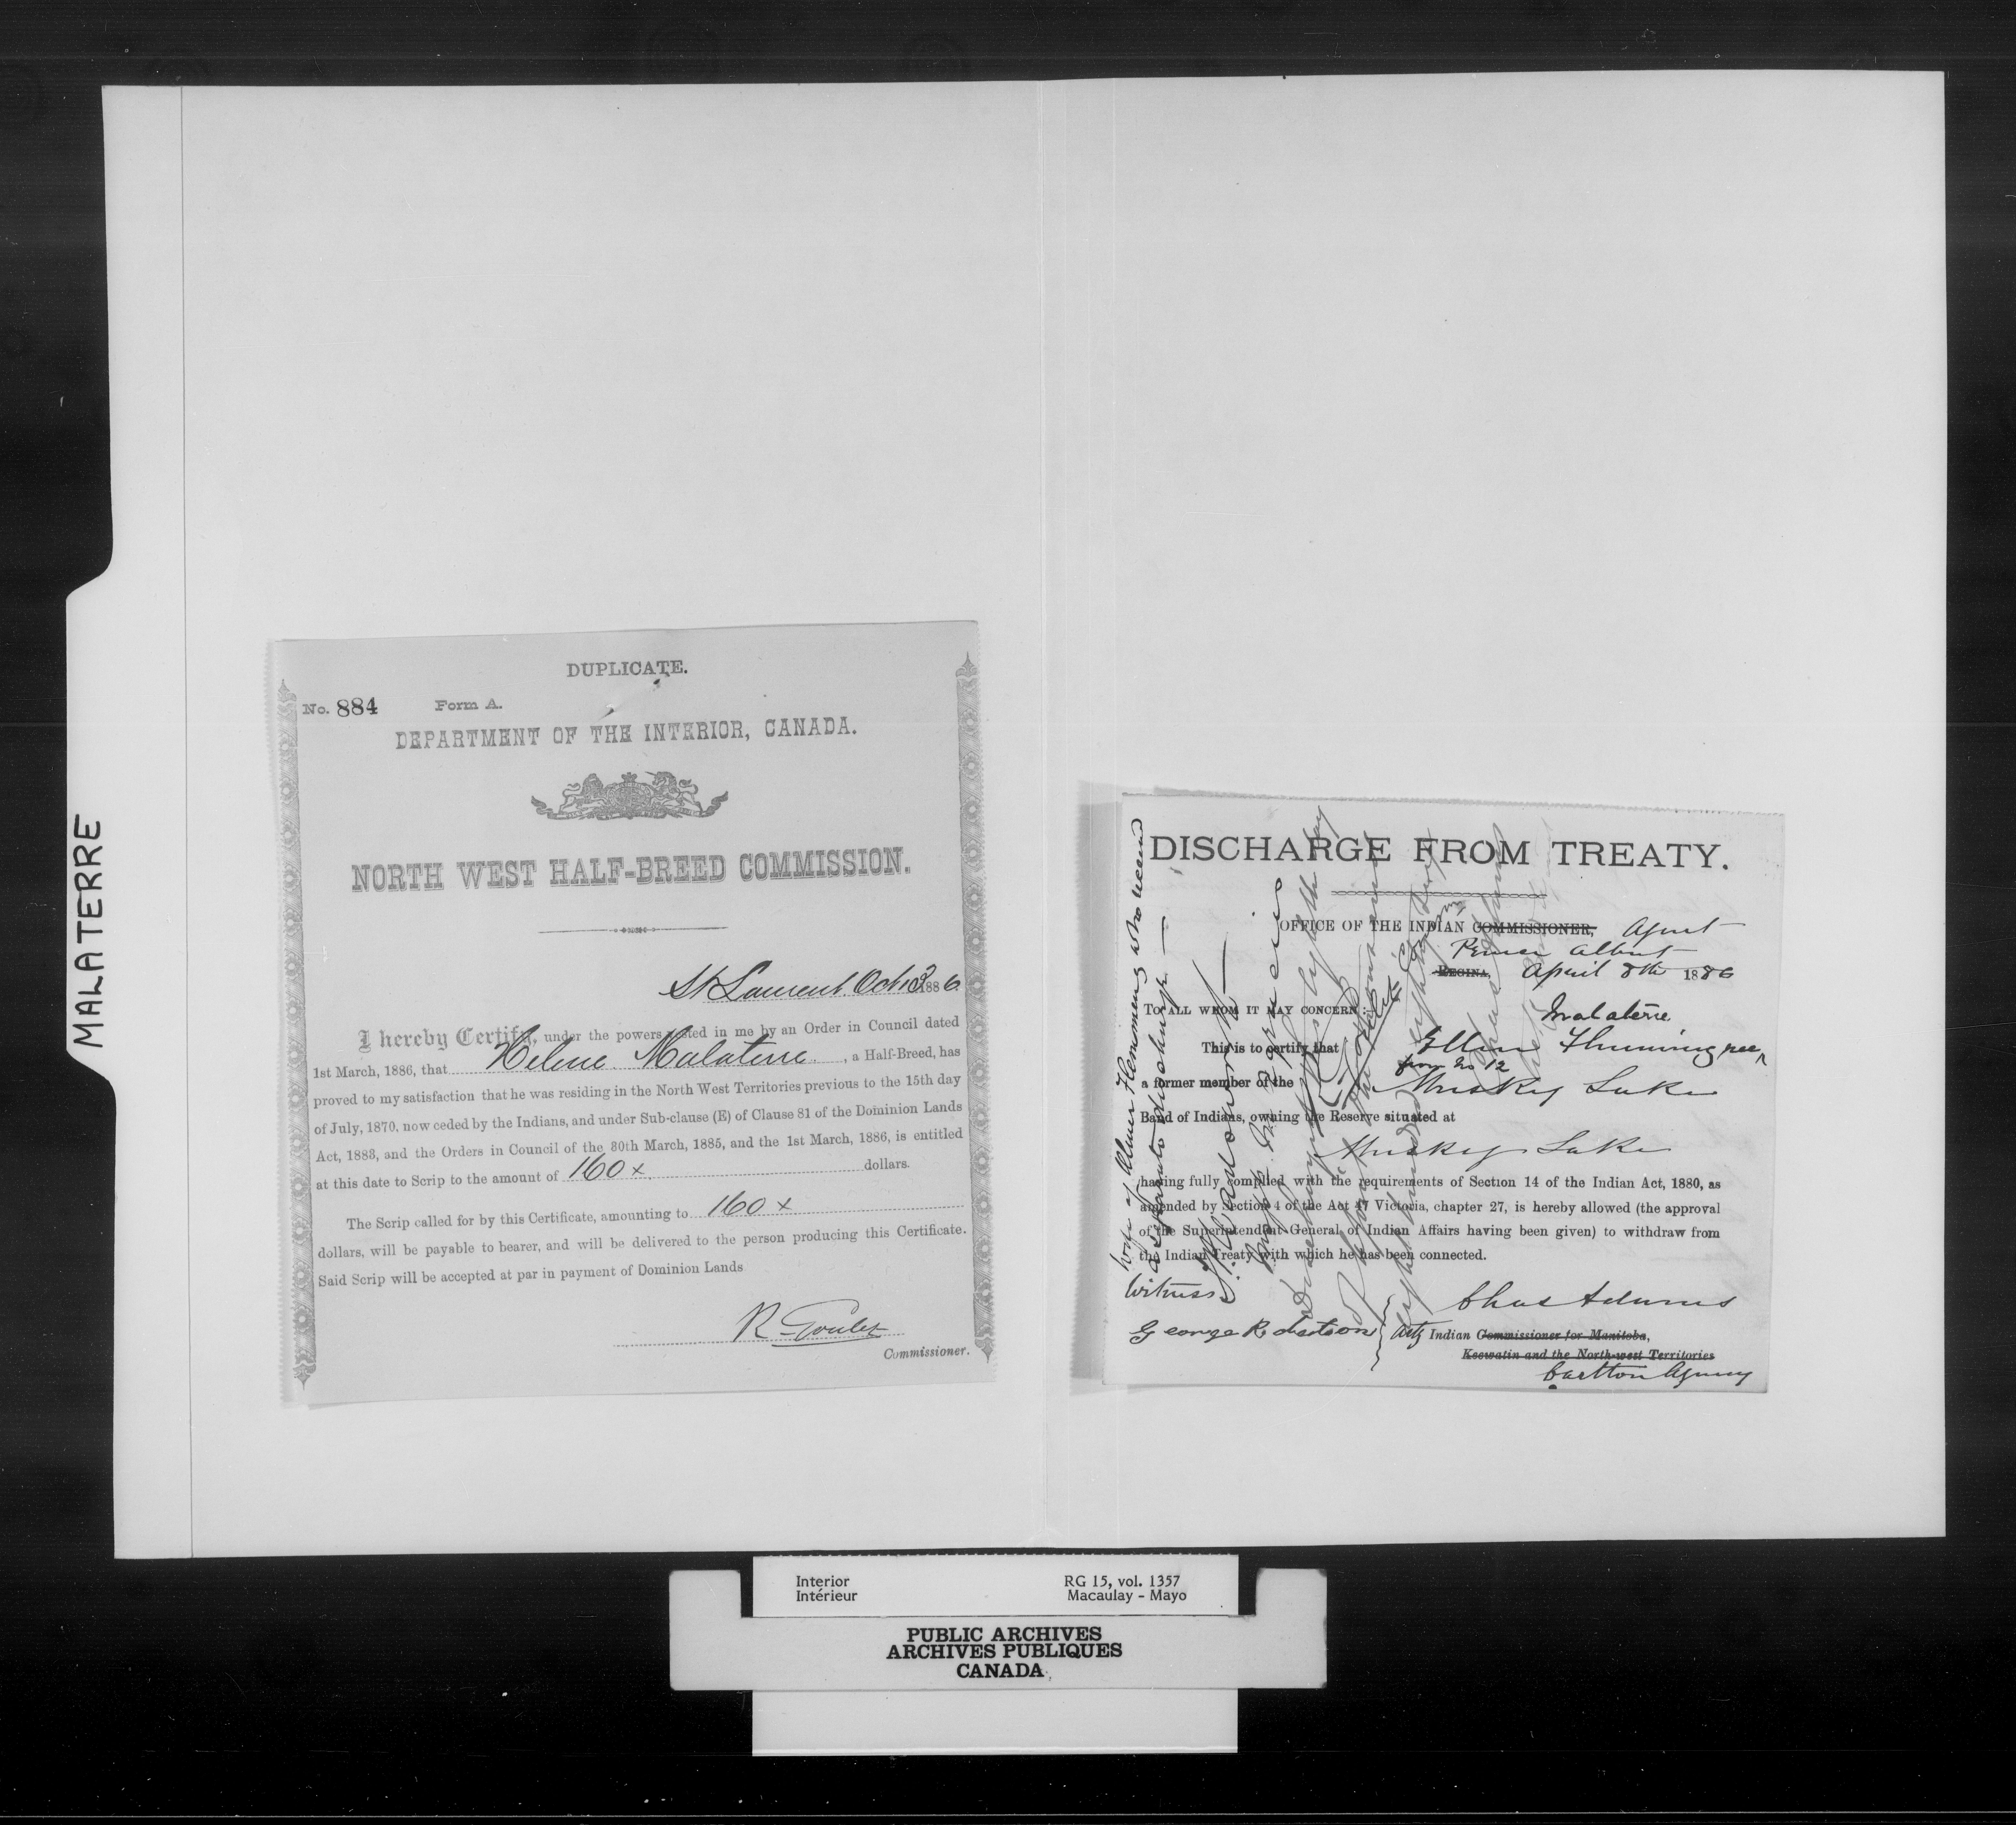 MALATERRE
DUPLICATE.
No. 884 Form A.
DEPARTMENT OF THE INTERIOR, CANADA.
NORTH WEST HALF-BREED COMMISSION.
St Laurent Oct 13 1886
I hereby Certify, under the powers vested in me by an Order in Council dated
1st March, 1886, that Helene Malaterre, a Half-Breed, has
proved to my satisfaction that he was residing in the North West Territories previous to the 15th day
of July, 1870, now ceded by the Indians, and under Sub-clause (E) of Clause 81 of the Dominion Lands
Act, 1883, and the Orders in Council of the 30th March, 1885, and the 1st March, 1886, is entitled
at this date to Scrip to the amount of 160 x dollars.
The Scrip called for by this Certificate, amounting to 160 x
dollars, will be payable to bearer, and will be delivered to the person producing this Certificate.
Said Scrip will be accepted at par in payment of Dominion Lands
R Goulet
Commissioner.
DISCHARGE FROM TREATY.
OFFICE OF THE INDIAN COMMISSIONER, Agent
Prince Albert
REGINA, April 8th 1886
TO ALL WHOM IT MAY CONCERN:
Malaterre
This is to certify that Ellen Flemming nee
from No 12
a former member of the Muskeg Lake
Band of Indians, owning the Reserve situated at
Muskeg Lake
having fully complied with the requirements of Section 14 of the Indian Act, 1880, as
amended by Section 4 of the Act 47 Victoria, chapter 27, is hereby allowed (the approval
of the Superintendent-General of Indian Affairs having been given) to withdraw from
the Indian Treaty with which he has been connected.
Witness
George Robertson
Chas Adams
Actg Indian Commissioner for Manitoba,
Keewatin and the North-west Territories
Carlton Agency
wife of Oliver Flemming who received
a separate discharge —
Interior RG 15, vol. 1357
Intérieur Macaulay - Mayo
PUBLIC ARCHIVES
ARCHIVES PUBLIQUES
CANADA